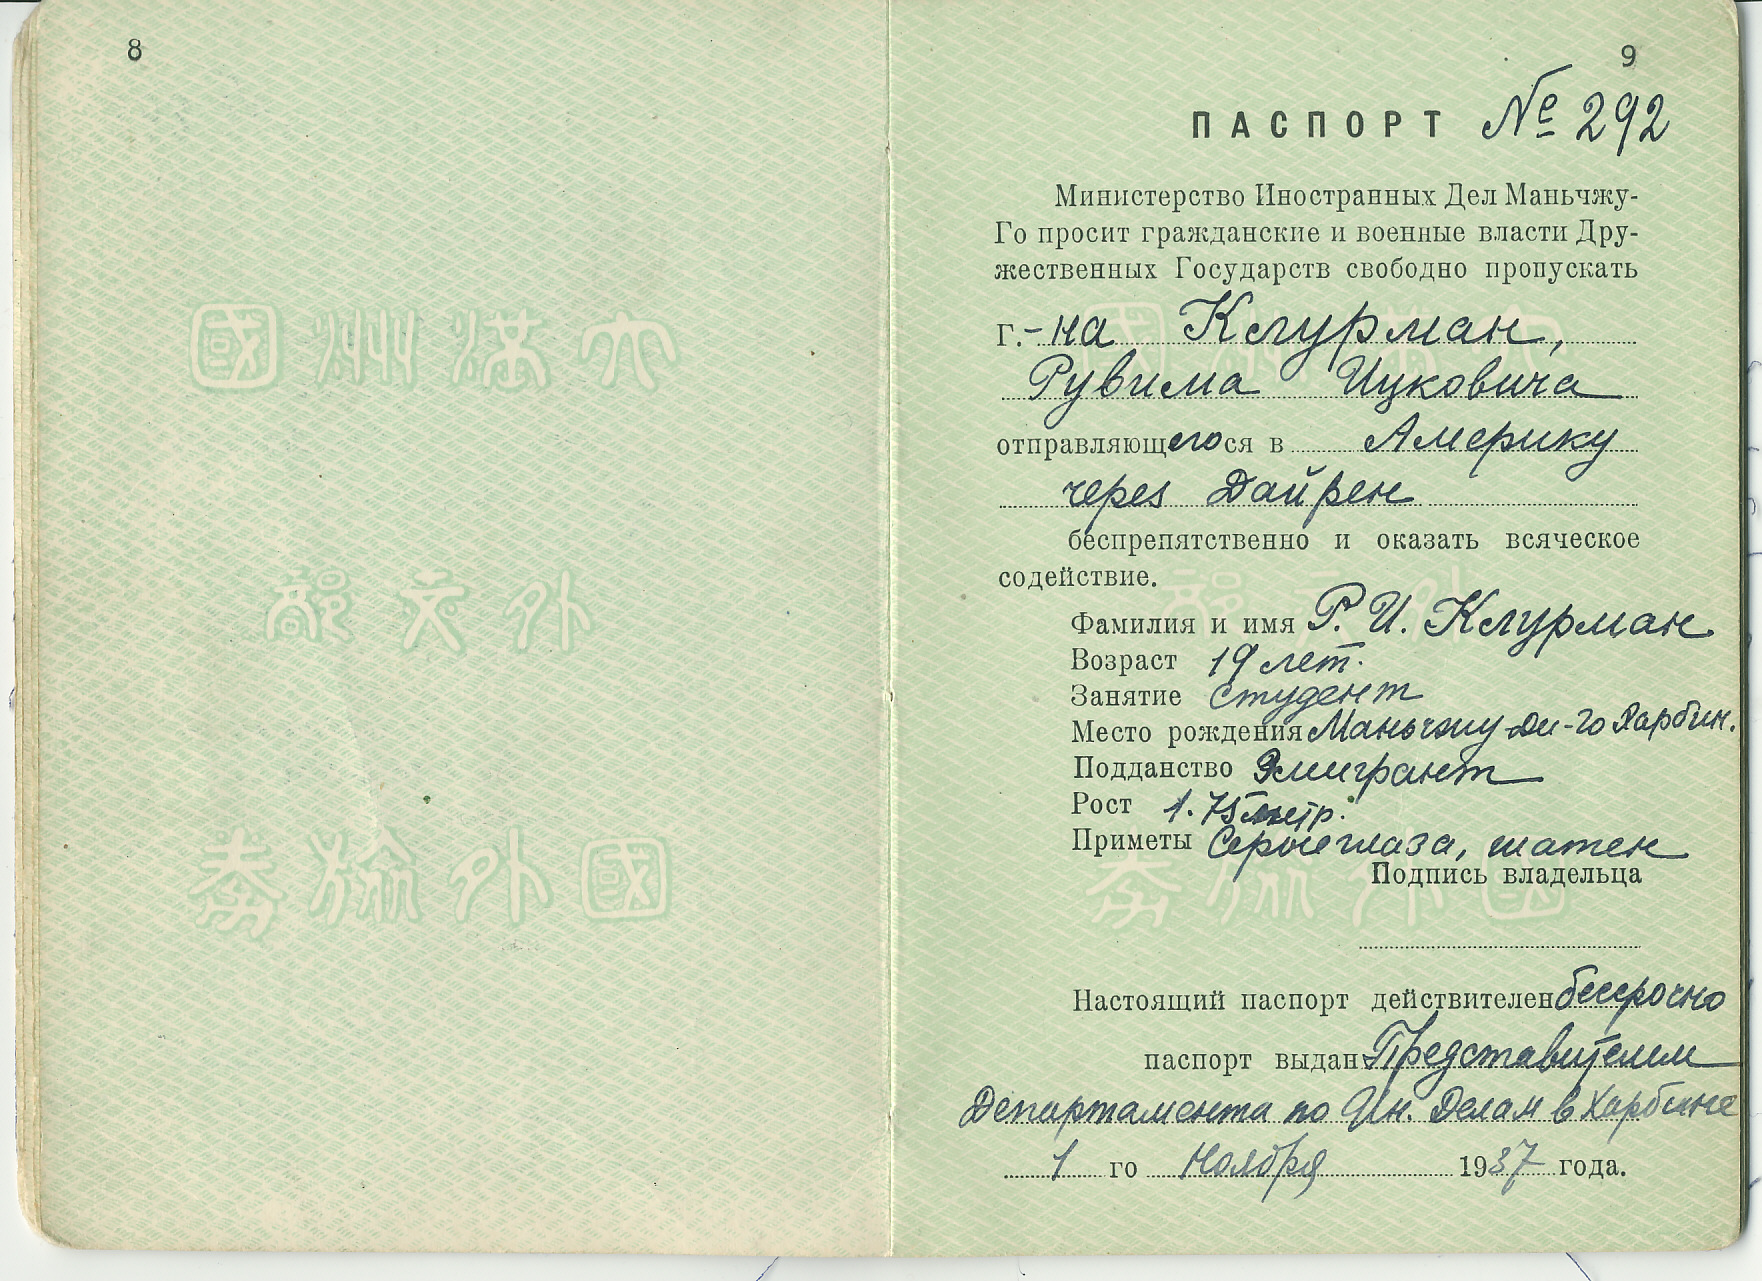 8
國 州 滿 大
部 交 外
國外
9
ПАСПОРТ № 292
Министерство Иностранных Дел Маньчжу-
Го просит гражданские и военные власти Дру-
жественных Государств свободно пропускать
г.-на Клурман,
Рувима Ицковича
отправляющегося в Америку
через Дайрен
беспрепятственно и оказать всяческое
содействие.
Фамилия и имя Р. И. Клурман
Возраст 19 лет.
Занятие студент
Место рождения Маньчжу-Ди-го Харбин.
Подданство Эмигрант
Рост 1.75 метр.
Приметы Серые глаза, шатен
Подпись владельца
Настоящий паспорт действителен бессрочно
паспорт выдан Представителем
Департамента по Ин. Делам в Харбине
1 го Ноября 1937 года.